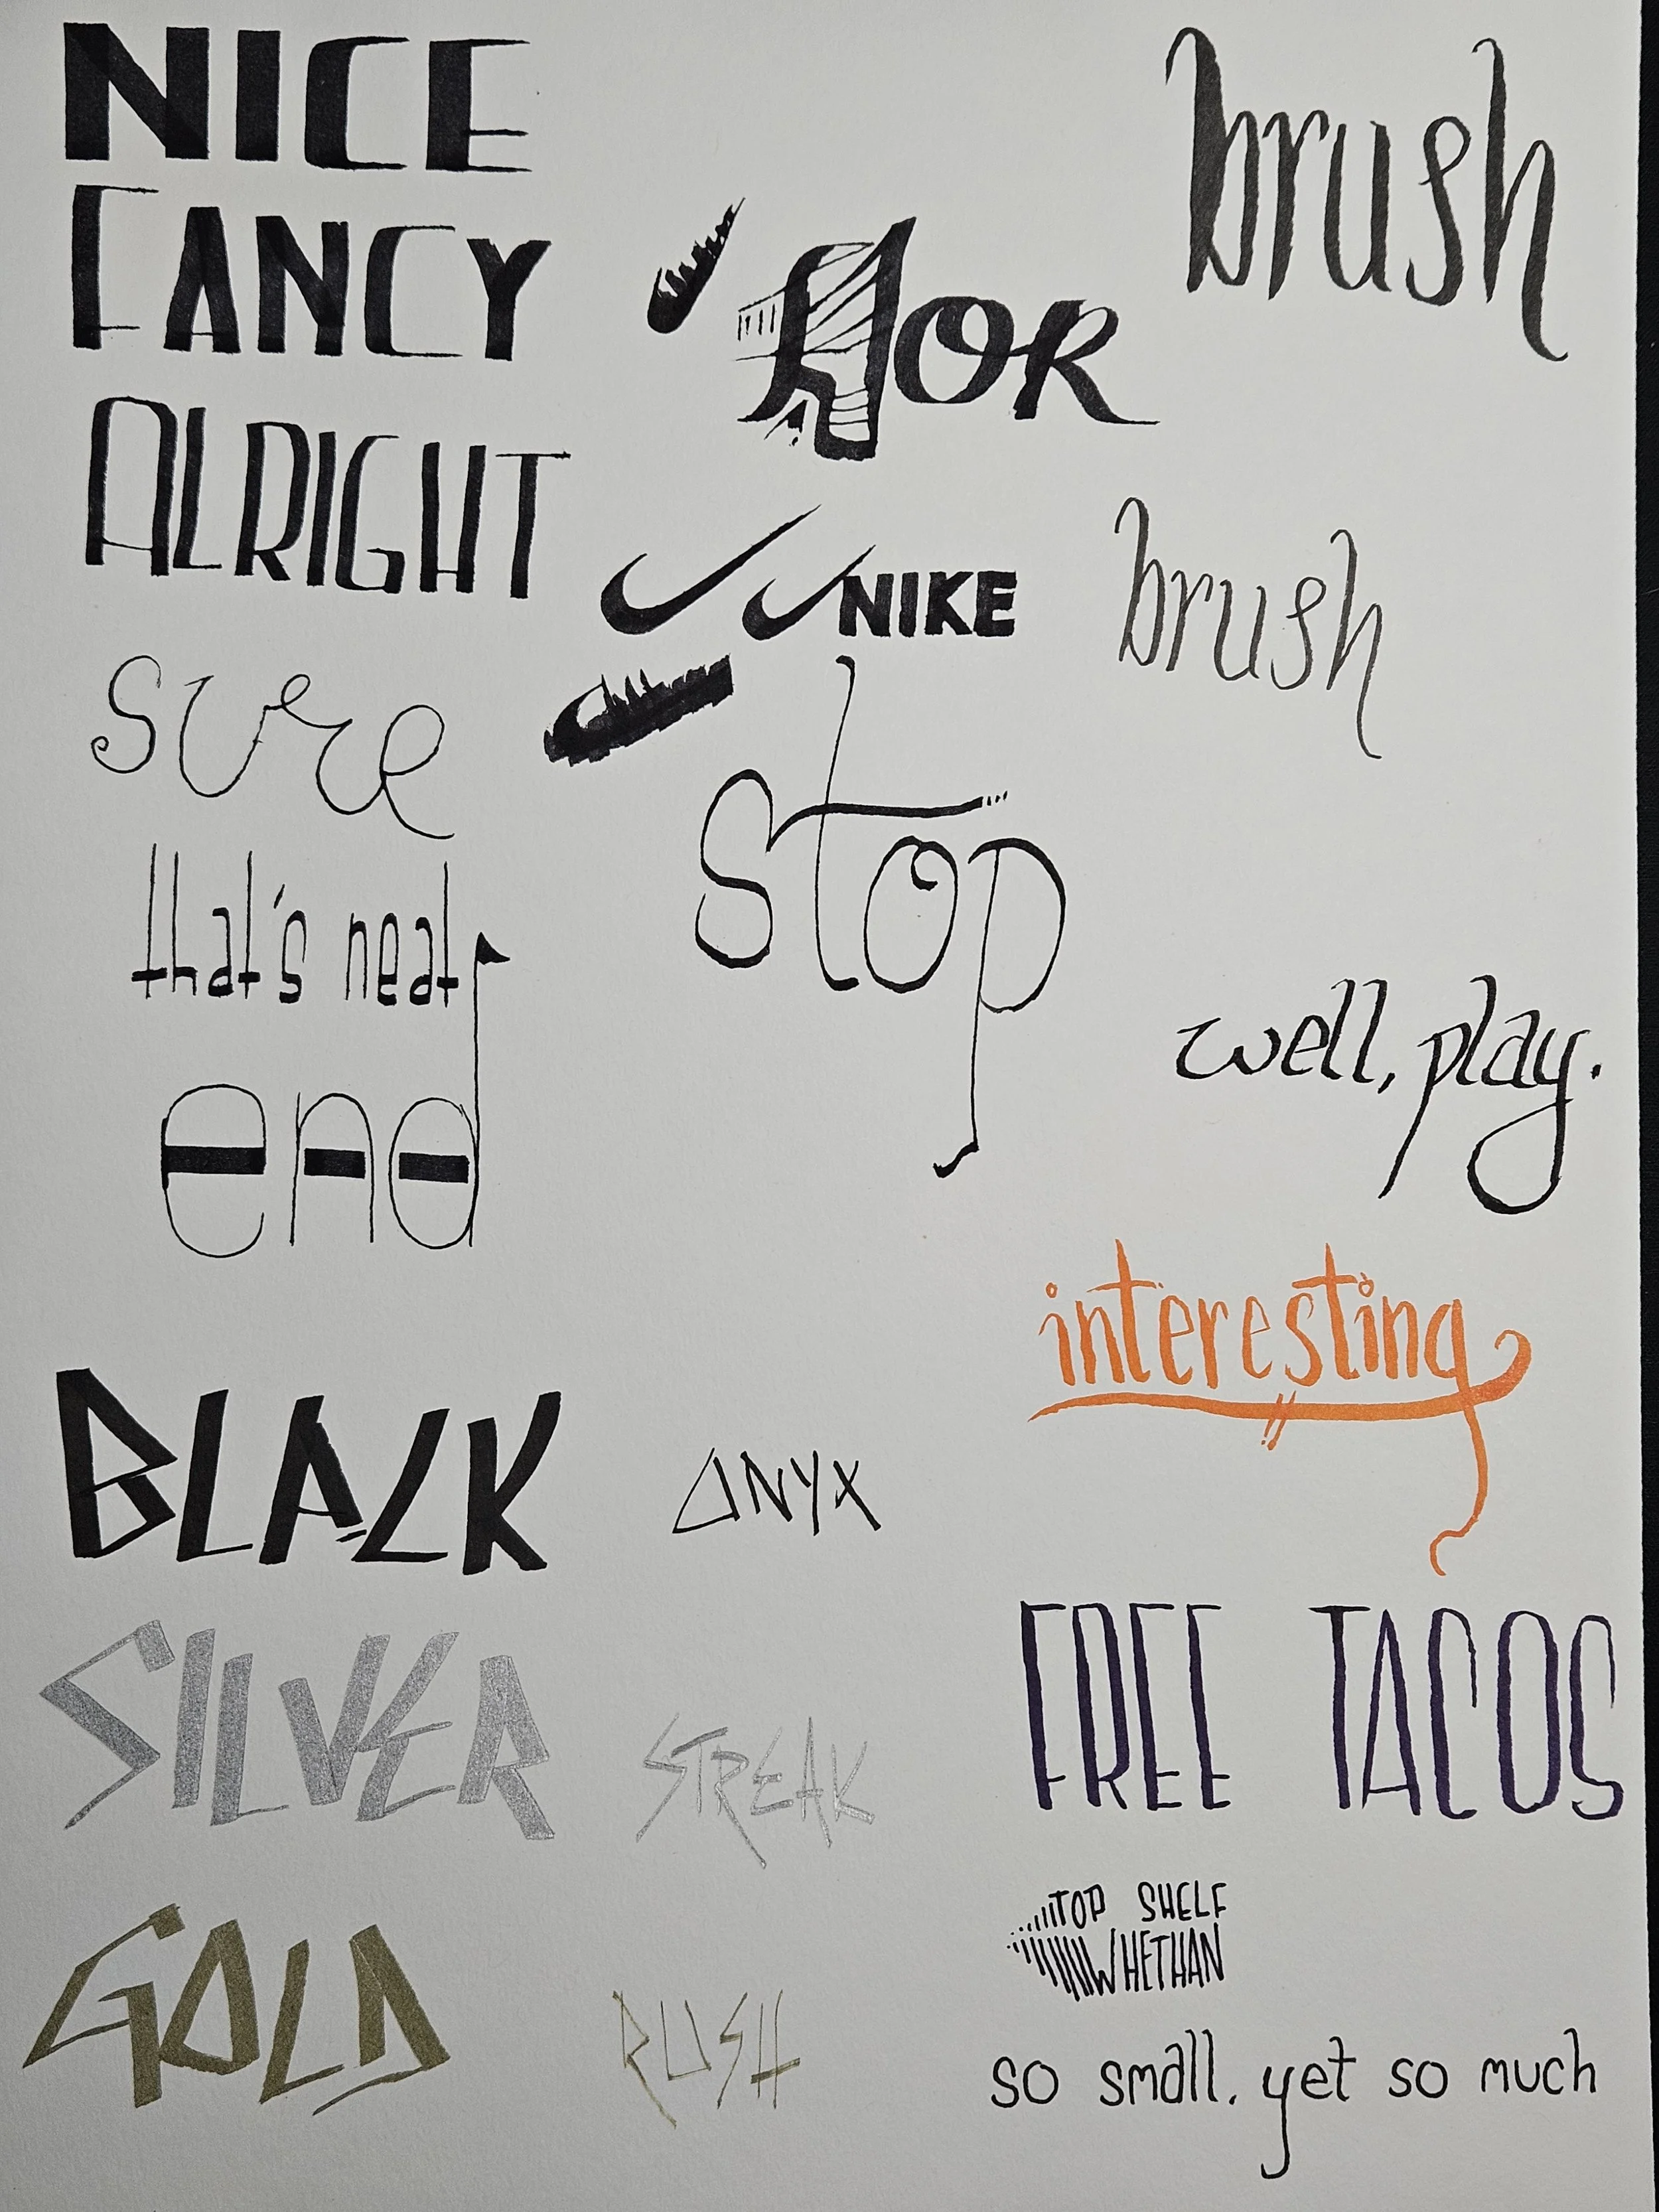 NICE
FANCY
ALRIGHT
sure
that's neat
end
HOR
NIKE
stop
brush
brush
well, play.
interesting
BLACK
ONYX
SILVER
STREAK
GOLD
RUSH
FREE TACOS
TOP SHELF
WHETHAN
so small. yet so much